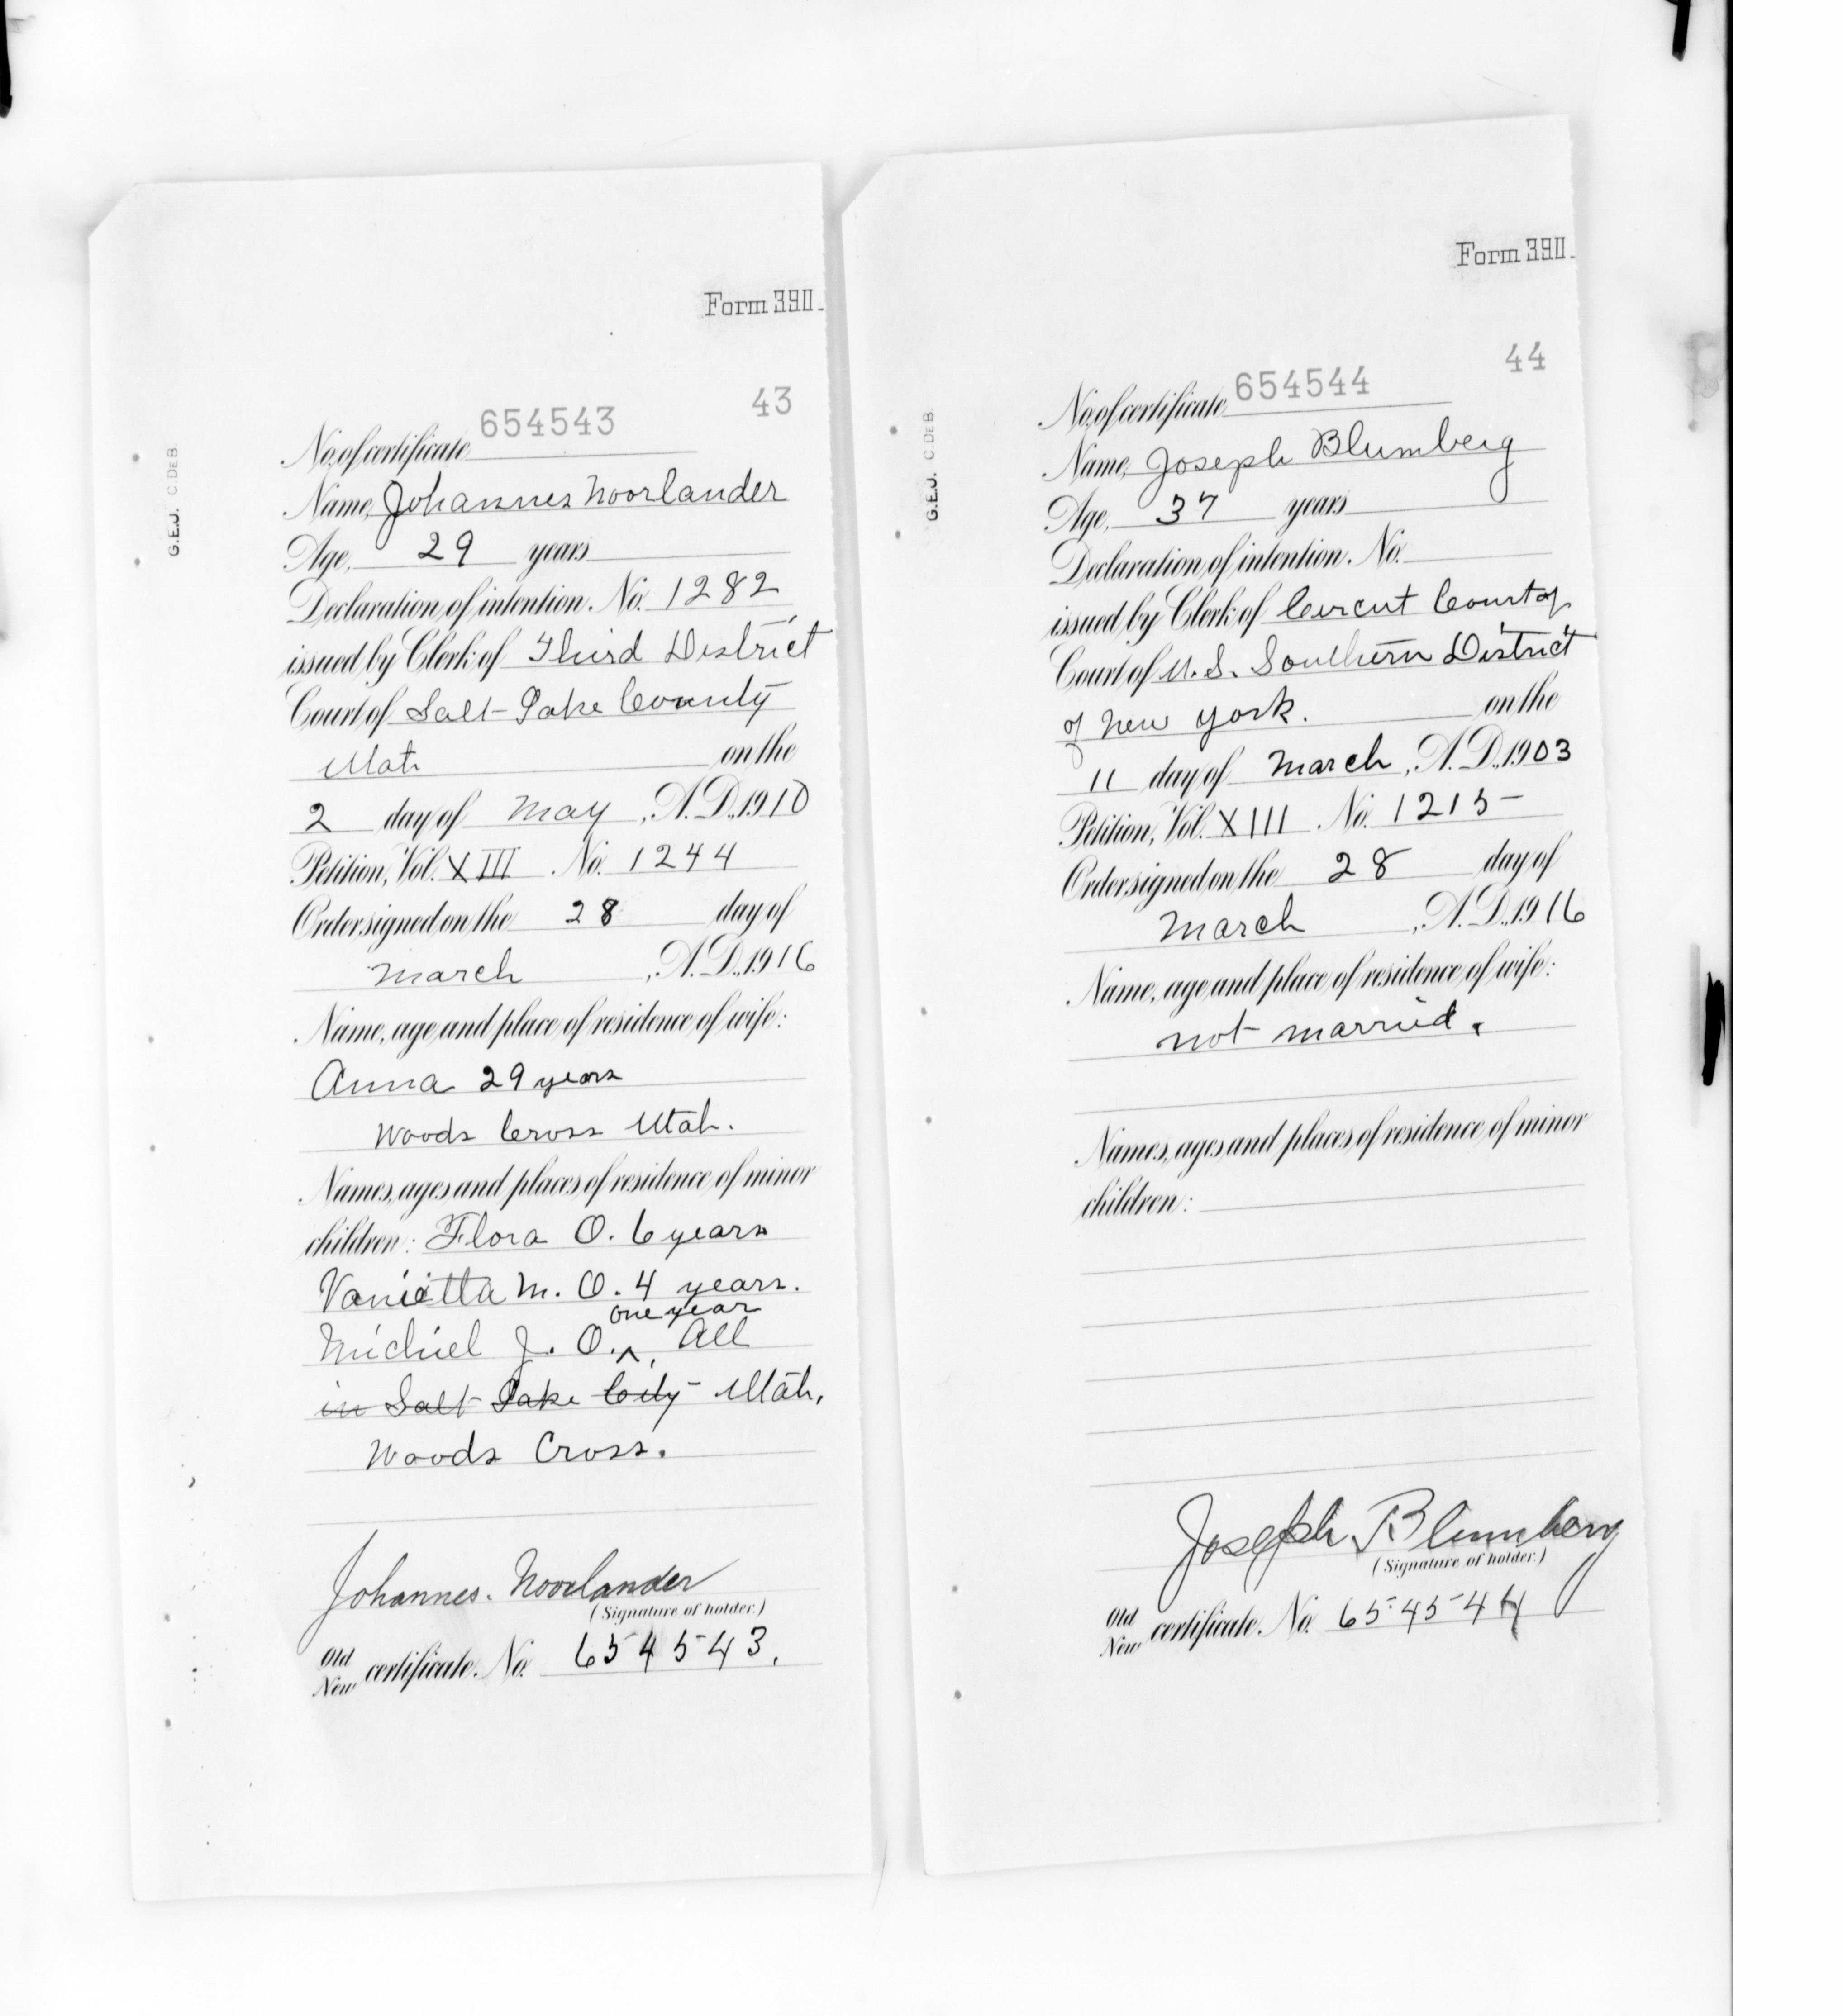 Form 390.
43
No. of certificate 654543
Name, Johannes Noorlander
Age, 29 years
Declaration of intention. No. 1282
issued by Clerk of Third District
Court of Salt Lake County
Utah on the
2 day of May, A.D. 1910
Petition, Vol. XIII No. 1244
Order signed on the 28 day of
March, A.D. 1916
Name, age and place of residence of wife:
Anna 29 years
Woods Cross Utah.
Names, ages and places of residence of minor
children: Flora O. 6 years
M. O. 4 years.
one year
Michiel J. O. ^, All
in Salt Lake City Utah,
Woods Cross.
Johannes. Noorlander
(Signature of holder.)
Old
New certificate. No. 654543.
G.E.J. C.DEB.
Form 390.
44
No. of certificate 654544
Name, Joseph Blumberg
Age, 37 years
Declaration of intention. No.
issued by Clerk of Circut Court of
Court of U.S. Southern District
of New York. on the
11 day of March, A.D. 1903
Petition, Vol. XIII No. 1215
Order signed on the 28 day of
March, A.D. 1916
Name, age and place of residence of wife:
not married.
Names, ages and places of residence of minor
children:
Joseph Blumberg
(Signature of holder.)
Old
New certificate. No. 654544
G.E.J. C.DEB.